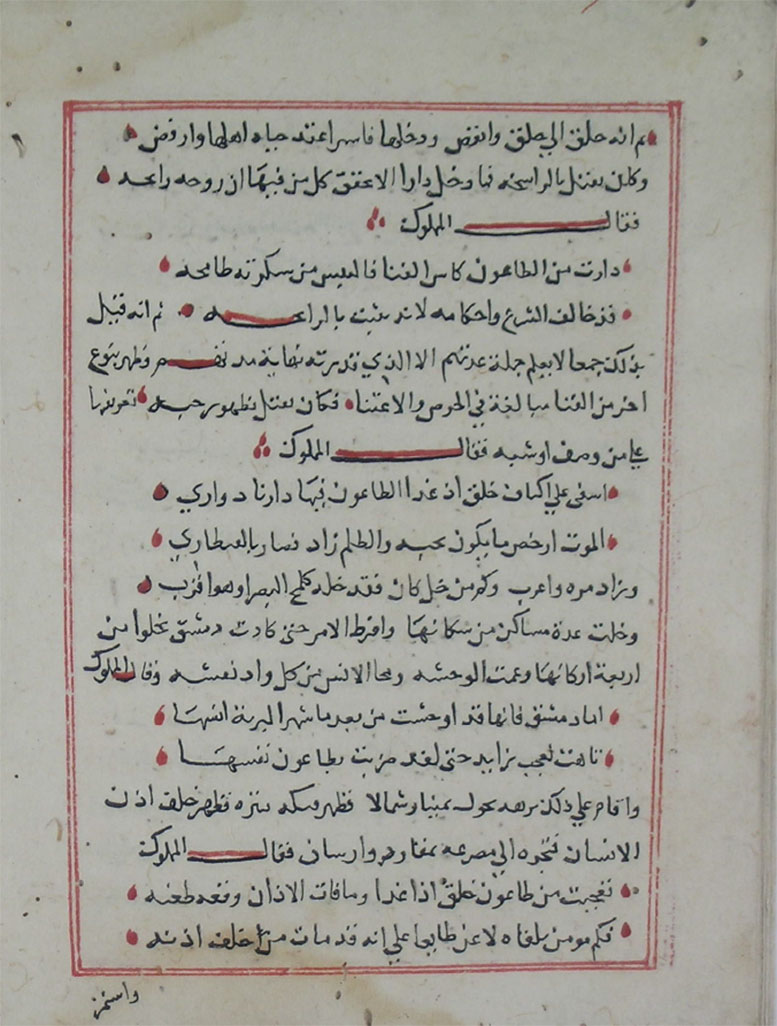 ثم انه حلق الي جلق وانقض ودخلها فاسرا عند حياه اهلها وارفض
وكان يقتل بالرائحه فما دخل دارا الا تحقق كل من فيها ان روحه رائحه
فقال المملوك
دارت من الطاعون كاس الفنا فالنفس من سكرته طافحه
قد خالف الشرع واحكامه لانه يثبت بالرائحه ثم انه قتل
بذلك جمعا لا يعلم جملة عدتهم الا الذي قدر مدته نهاية وظهر بنوع
اخر من الفنا مبالغة في الحرص والاعتنا فكان يقتل بظهور حبه
علي من وصف او شبه فقال المملوك
اسفي علي اكناف جلق اذ غدا الطاعون فيها ذا زناد واري
الموت ارخص ما يكون بحبه والظلم زاد فصار بالقنطاري
وزاد مره واغرب وكم من خل كان فقد خله كلمح البصر او هو اقرب
وخلت عدة مساكن من سكانها وافرط الامر حتي كادت دمشق تخلوا من
اربعة اركانها وعمت الوحشه ومحا الانس من كل واد نعشه وقال المملوك
اما دمشق فانها قد اوحشت من بعد ما شهد البرية انسها
تاهت بعجب زايد حتي لقد ضربت بطاعون نفسها
واقام علي ذلك برهه يجول يمينا وشمالا فظهر خلف اذن
الانسان فتجره الي مصرعه بمقاود وارسان فقال المملوك
تعجبت من طاعون جلق اذ غدا وما فاتت الاذان وقعه طعنه
فكم مومن تلقاه لاعن طايعا علي انه قد مات من خلف اذنه
واستمر